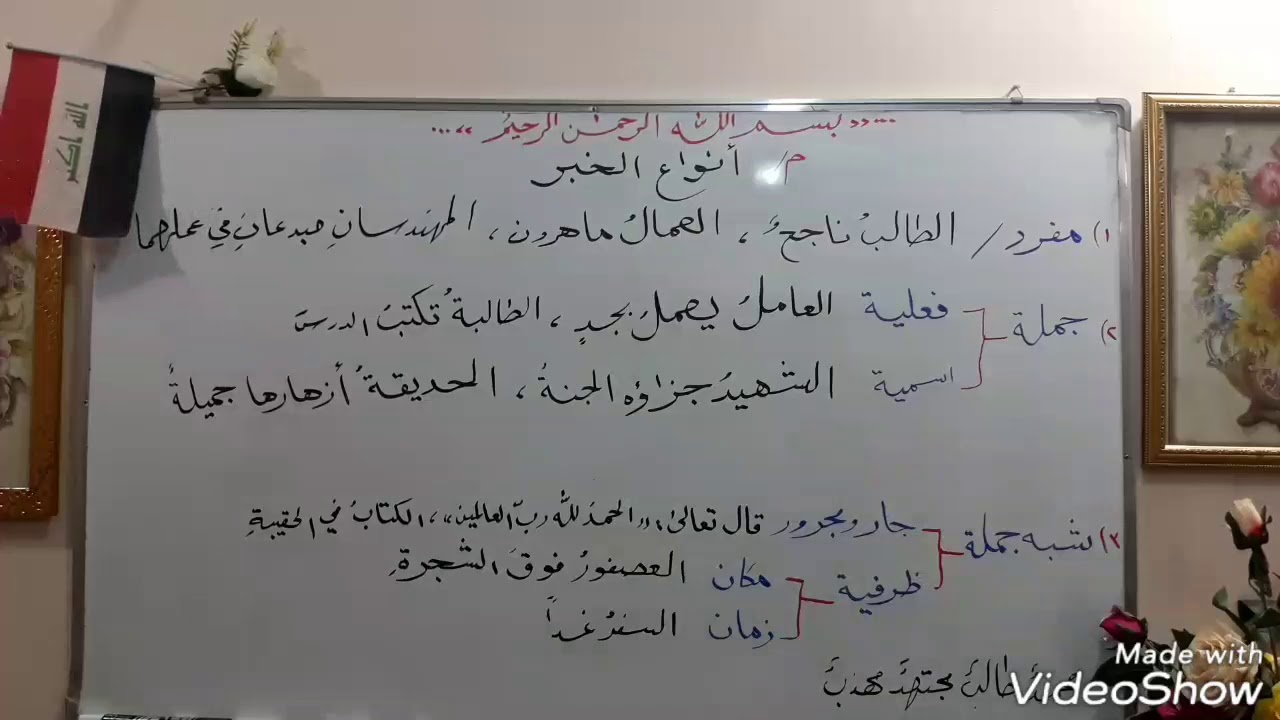 ...«بسم الله الرحمن الرحيم»...
م/ أنواع الخبر
١) مفرد / الطالبُ ناجحٌ ، العمالُ ماهرون ، المهندسانِ مبدعانِ في عملهما
٢) جملة
فعلية العاملُ يعملُ بجدٍ ، الطالبةُ تكتبُ الدرسَ
اسمية الشهيدُ جزاؤه الجنةُ ، الحديقةُ أزهارها جميلةٌ
٣) شبه جملة
جار ومجرور قال تعالى: «الحمدُ للّٰه ربّ العالمين» ، الكتابُ في الحقيبةِ
ظرفية
مكان العصفورُ فوقَ الشجرةِ
زمان السفرُ غداً
طالبٌ مجتهدٌ مهذبٌ
الله أكبر
Made with
VideoShow